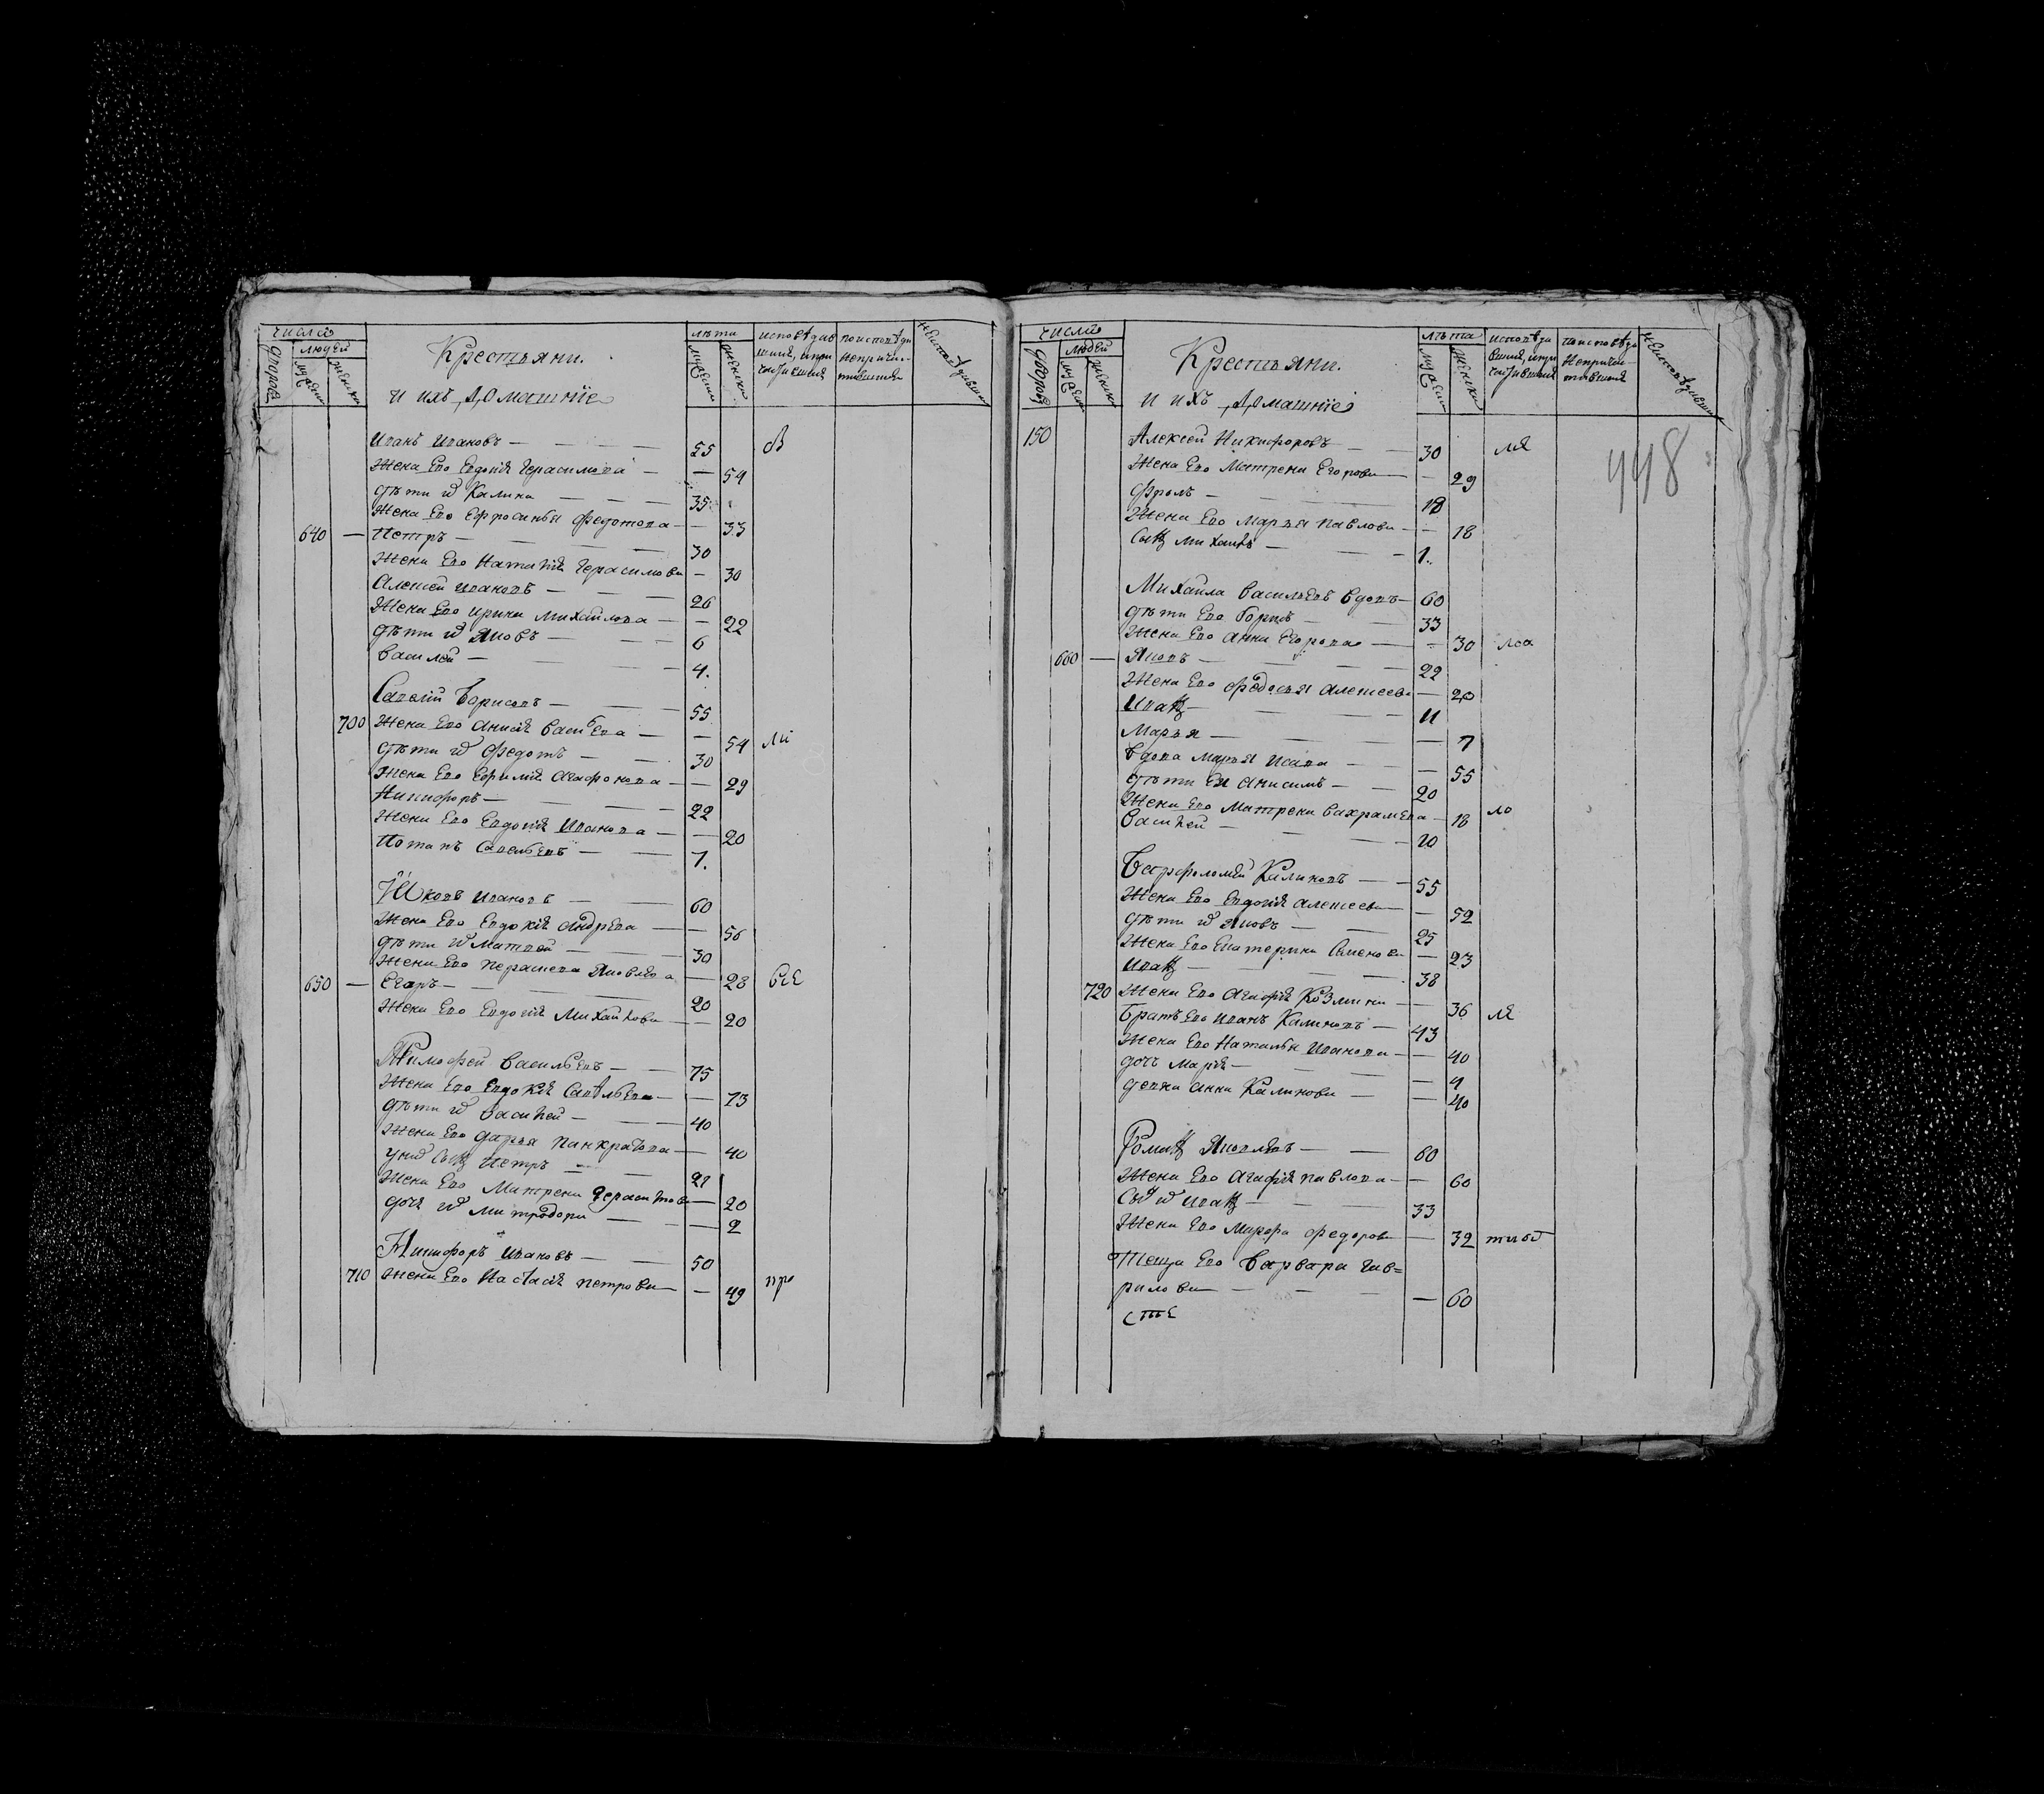 числа
людей
дворовъ
мужеска
женска
Крестьяни.
и ихъ домашніе
лѣта
мужеска
женска
исповѣдав
шия, и при
чатившия
поисповѣди
непричас-
тившия
неисповѣдавши
Иванъ Ивановъ — 55
жена Ево Евдокія Герасимова — 54
дѣти их Калина — 35
жена Ево Ефросинья Федотова — 33
640 — Петръ — 30
жена Ево Наталія Герасимова — 30
Алексей Ивановъ — 26
жена Ево Ирина Михайлова — 22
дѣти их Яковъ — 6
Василей — 4.
Савелий Борисовъ — 55
700 жена Ево Анисія Васильева — 54 ли
дѣти их Федотъ — 30
жена Ево Ефимія Агафонова — 29
Никифоръ — 22
жена Ево Евдокія Иванова — 20
Потапъ Савельевъ — 7.
Яковъ Ивановъ — 60
жена Ево Евдокія Андрѣева — 56
дѣти их Матвей — 30
жена Ево Парасковя Яковлева — 28 все
650 — Егоръ — 20
жена Ево Евдокія Михайлова — 20
Тимофей Васильевъ — 75
жена Ево Евдокія Савѣльева — 73
дѣти их Василей — 40
жена Ево Дарья Панкратова — 40
у них сынъ Петръ — 21
жена Ево Матрена Герасимова — 20
дочь их Митродора — 2
Никифоръ Ивановъ — 50
710 жена Ево Настасія Петрова — 49 пр
числа
людей
дворовъ
мужеска
женска
Крестьяни.
и ихъ домашніе
лѣта
мужеска
женска
исповѣда
вшия, и при
чатившия
поисповѣди
непричас-
тившия
неисповѣдавши
448
150 Алексей Никифоровъ — 30
жена Ево Матрена Егорова — 29
Фролъ — 18
жена Ево Марья Павлова — 18
сынъ Михаилъ — 1.
Михайла Васильевъ вдовъ — 60
дѣти Ево Борисъ — 33
жена Ево Анна Егорова — 30
660 — Яковъ — 22
жена Ево Федосья Алексеева — 20
Иванъ — 11
Марья — 7
Вдова Марья Исаева — 55
дѣти Ея Анисимъ — 20
жена Ево Матрена Вахрамѣева — 18 ло
Василей — 10
Варфоломей Калиновъ — 55
жена Ево Евдокія Алексеева — 52
дѣти их Яковъ — 25
жена Ево Екатерина Семенова — 23
Иванъ — 38
720 жена Ево Агафія Козмина — 36
Братъ Ево Иванъ Калиновъ — 43
жена Ево Наталья Иванова — 40
дочь Марія — 4
девка Анна Калинова — 40
Романъ Яковлевъ — 60
жена Ево Агафія Павлова — 60
Сынъ их Иванъ — 33
жена Ево Мавра Федорова — 32
Теща Ево Варвара Гав=
рилова — 60